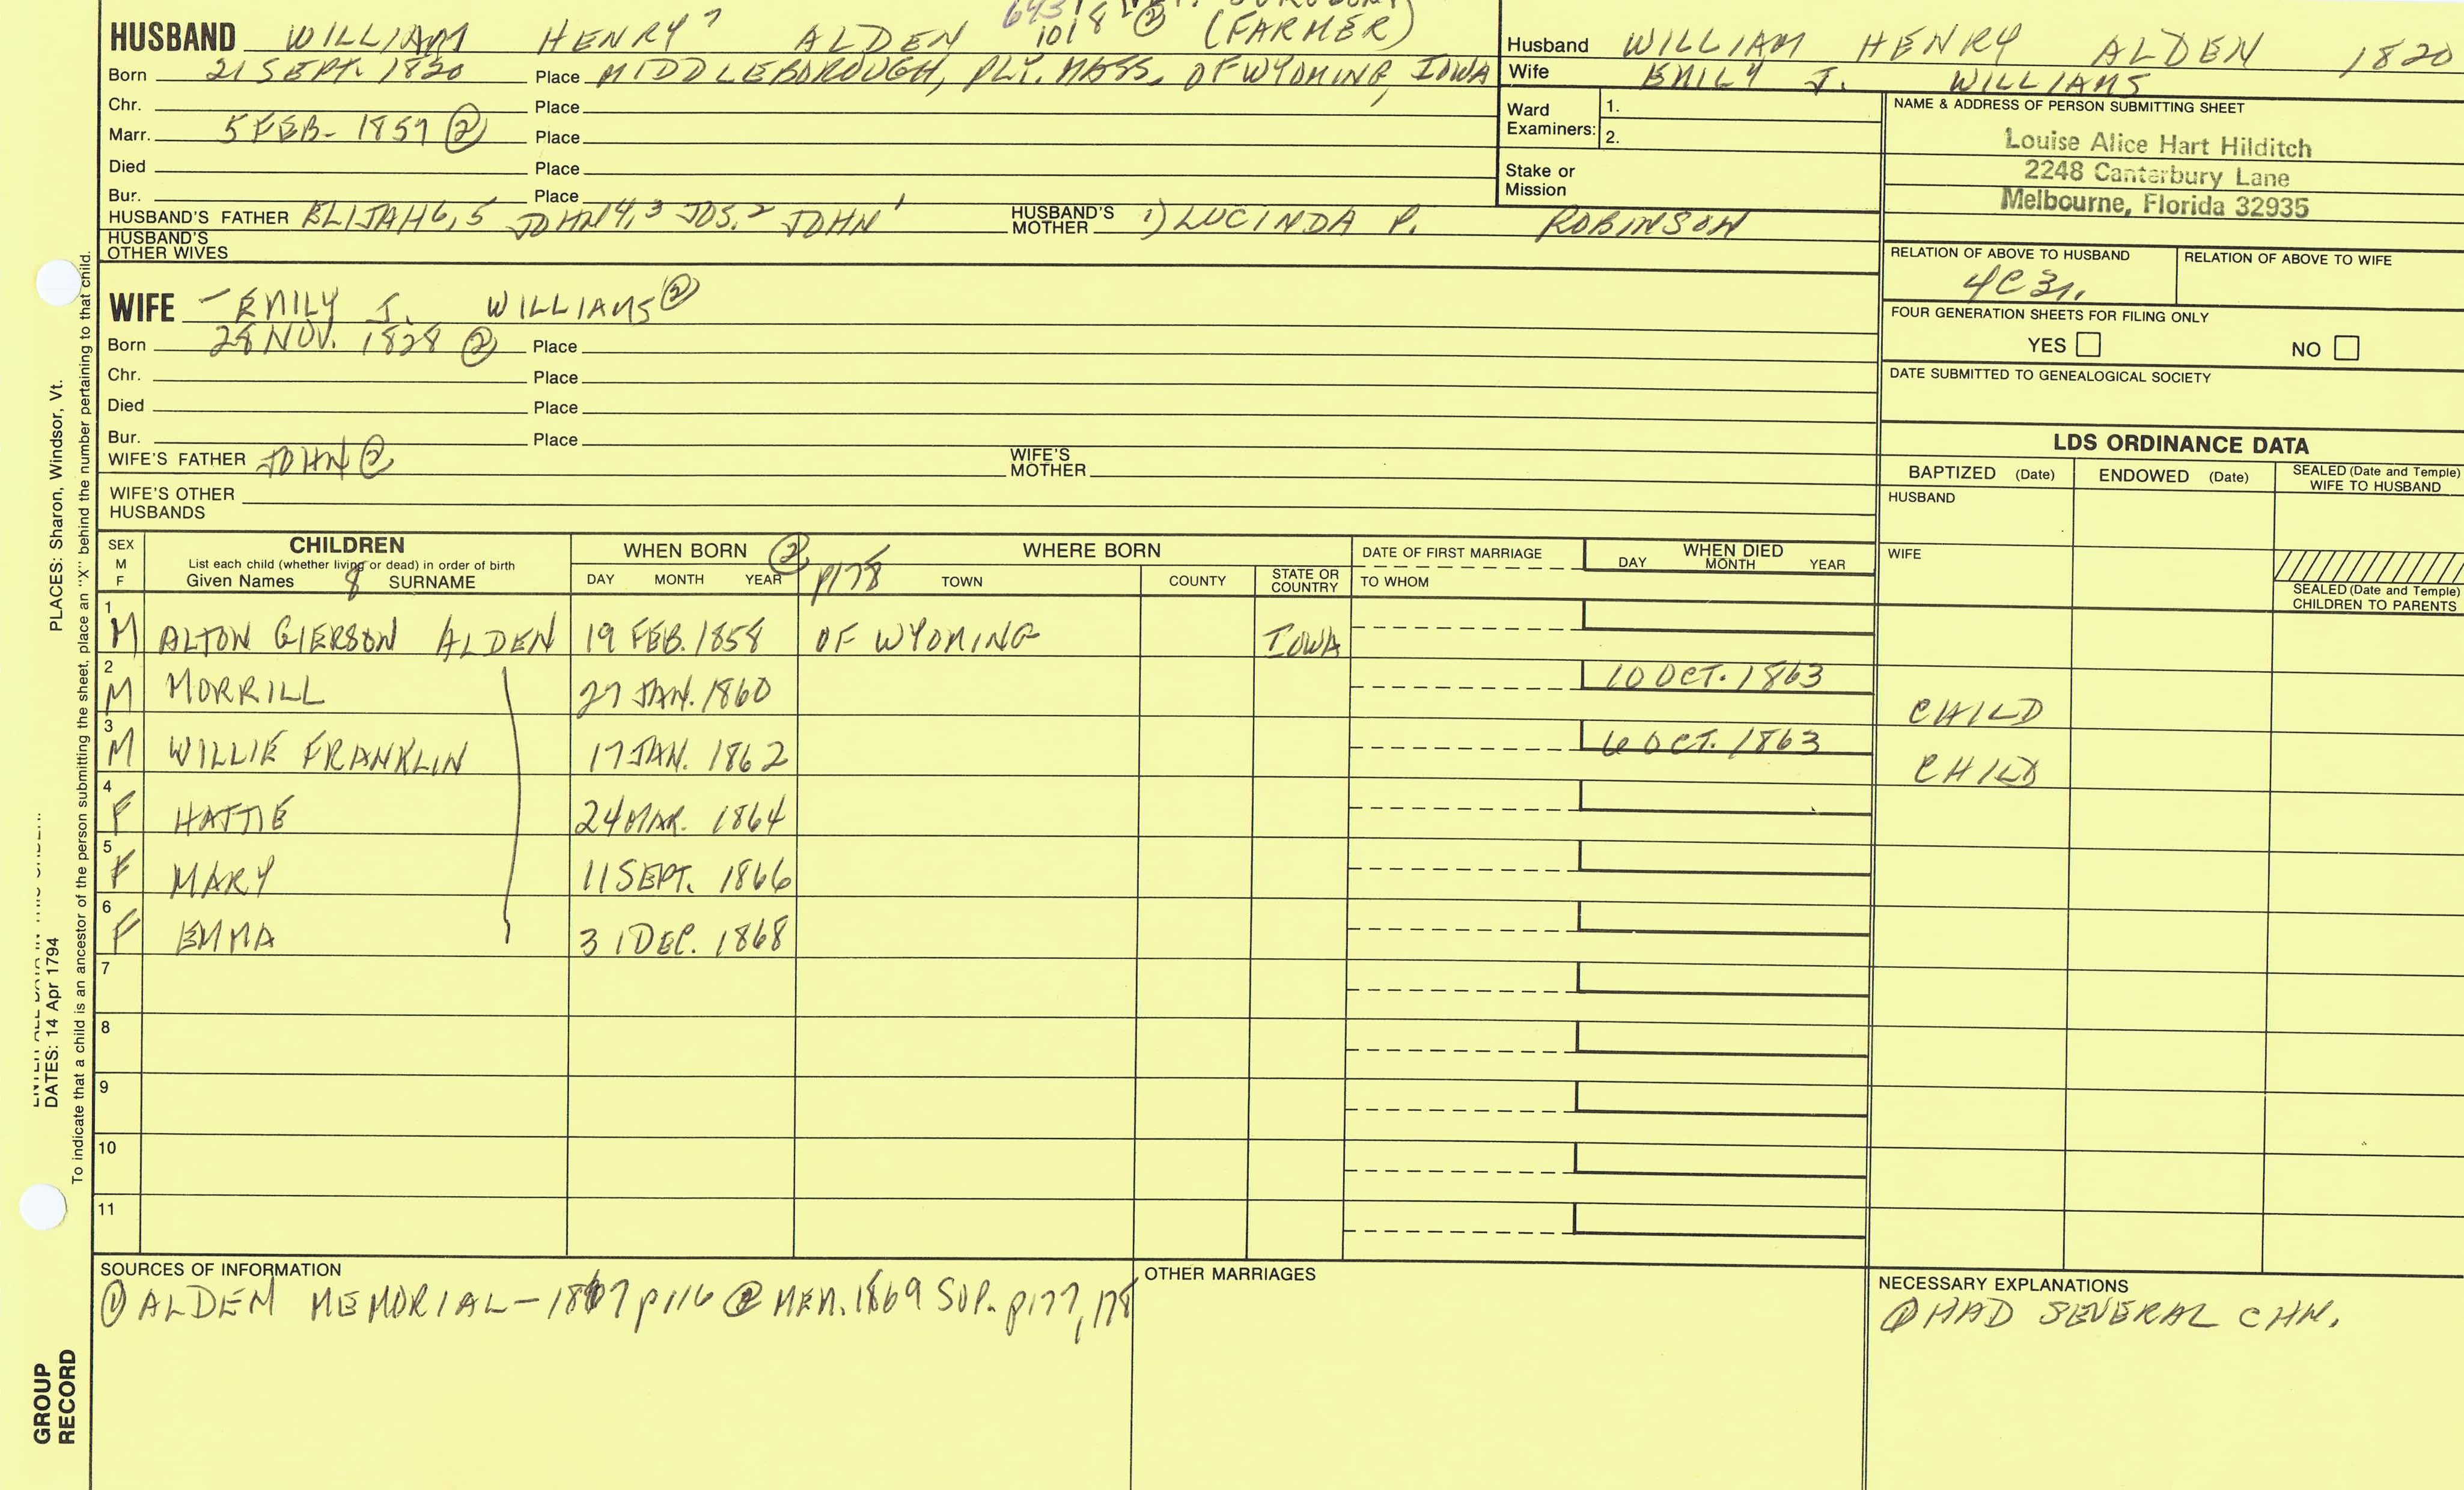 HUSBAND WILLIAM HENRY 7 ALDEN 1018 ② (FARMER)
Born 21 SEPT. 1820 Place MIDDLEBOROUGH, PLY. MASS. OF WYOMING, IOWA
Chr. Place
Marr. 5 FEB- 1857 ② Place
Died Place
Bur. Place
HUSBAND'S FATHER ELIJAH 6,5 JOHN 4,3 JOS. 2 JOHN 1 HUSBAND'S MOTHER 1) LUCINDA P. ROBINSON
HUSBAND'S OTHER WIVES
Husband WILLIAM HENRY ALDEN 1820
Wife EMILY J. WILLIAMS
Ward Examiners: 1.
2.
Stake or Mission
NAME & ADDRESS OF PERSON SUBMITTING SHEET
Louise Alice Hart Hilditch
2248 Canterbury Lane
Melbourne, Florida 32935
RELATION OF ABOVE TO HUSBAND RELATION OF ABOVE TO WIFE
4C3r.
FOUR GENERATION SHEETS FOR FILING ONLY
YES NO
DATE SUBMITTED TO GENEALOGICAL SOCIETY
WIFE - EMILY J. WILLIAMS ②
Born 28 NOV. 1828 ② Place
Chr. Place
Died Place
Bur. Place
WIFE'S FATHER JOHN ② WIFE'S MOTHER
WIFE'S OTHER HUSBANDS
LDS ORDINANCE DATA
BAPTIZED (Date) ENDOWED (Date) SEALED (Date and Temple) WIFE TO HUSBAND
HUSBAND
WIFE
SEALED (Date and Temple) CHILDREN TO PARENTS
SEX M F
CHILDREN
List each child (whether living or dead) in order of birth
Given Names 8 SURNAME
WHEN BORN ②
DAY MONTH YEAR
p178
WHERE BORN
TOWN COUNTY STATE OR COUNTRY
DATE OF FIRST MARRIAGE
TO WHOM
WHEN DIED
DAY MONTH YEAR
1 M ALTON GIERSON ALDEN 19 FEB. 1858 OF WYOMING IOWA
2 M MORRILL 27 JAN. 1860 10 OCT. 1863 CHILD
3 M WILLIE FRANKLIN 17 JAN. 1862 6 OCT. 1863 CHILD
4 F HATTIE 24 MAR. 1864
5 F MARY 11 SEPT. 1866
6 F EMMA 31 DEC. 1868
7
8
9
10
11
SOURCES OF INFORMATION
① ALDEN MEMORIAL - 1867 p116 ② MEM. 1869 SUP. p177, 178
OTHER MARRIAGES
NECESSARY EXPLANATIONS
① HAD SEVERAL CHN.
PLACES: Sharon, Windsor, Vt.
DATES: 14 Apr 1794
To indicate that a child is an ancestor of the person submitting the sheet, place an "X" behind the number pertaining to that child.
GROUP RECORD